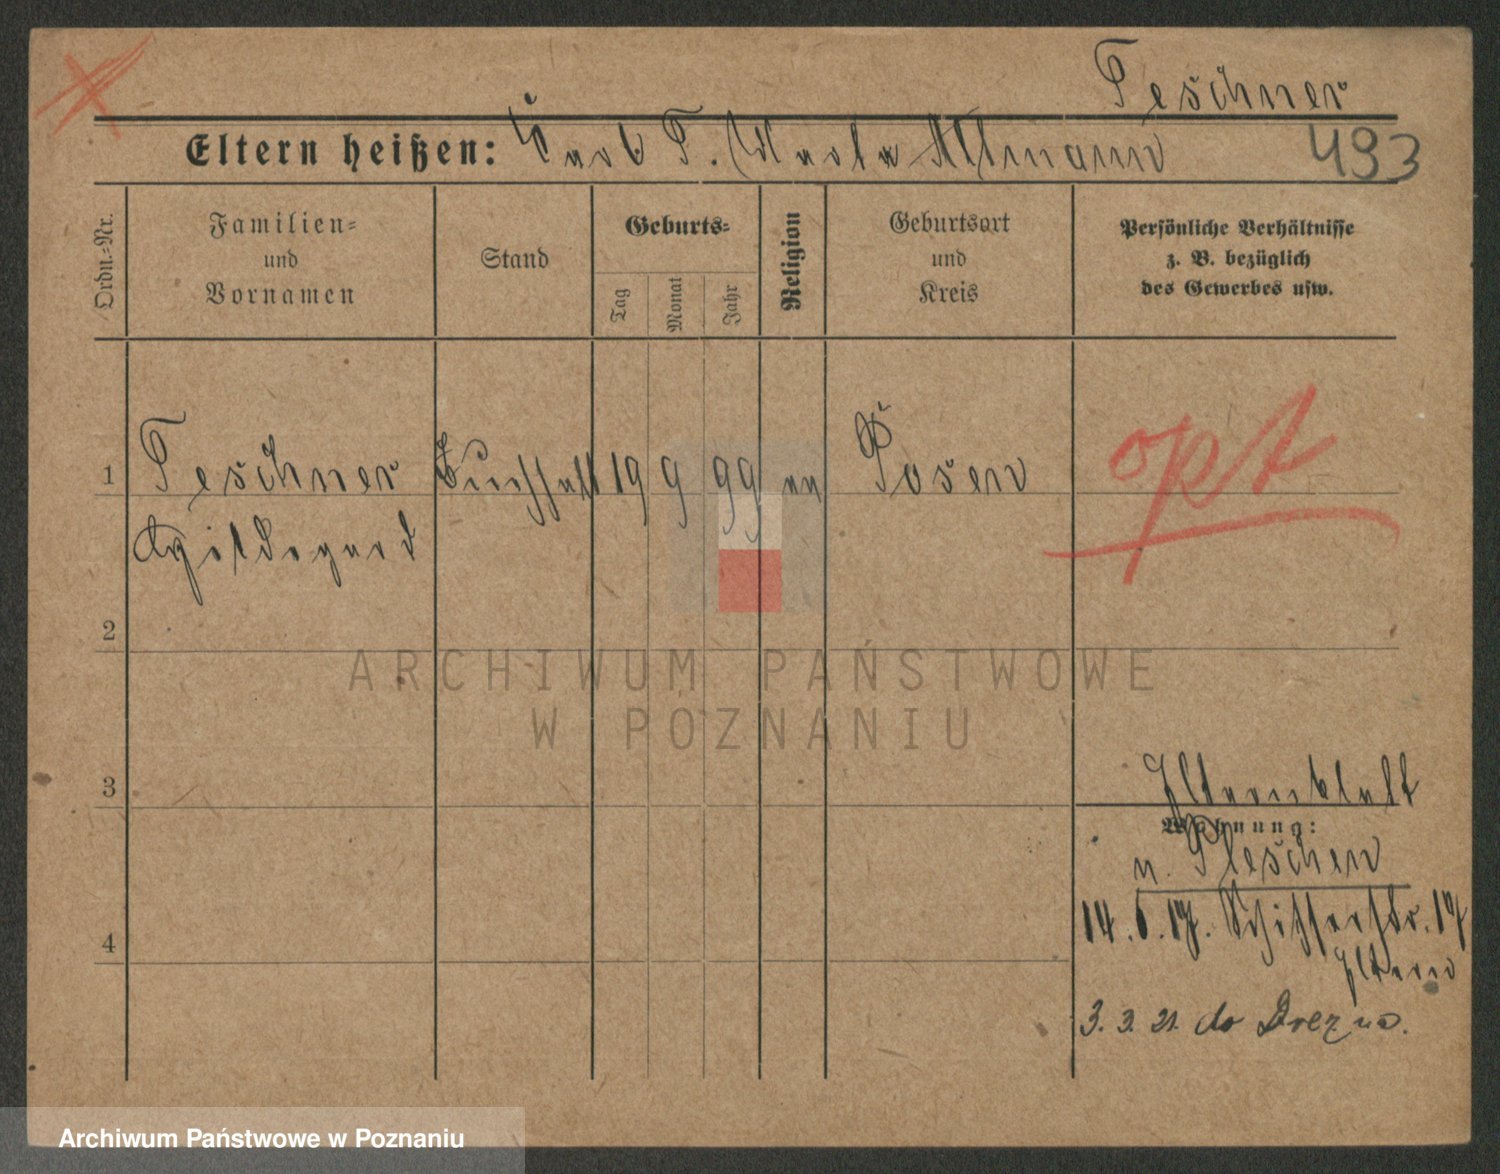 Teschner
Eltern heißen: T. Altmann
493
Ordn.-Nr.
Familien-
und
Vornamen
Stand
Geburts-
Tag
Monat
Jahr
Religion
Geburtsort
und
Kreis
Persönliche Verhältnisse
z. B. bezüglich
des Gewerbes usw.
1
Teschner
Hildegard
19
9
99
ev
Posen
opt
2
ARCHIWUM PAŃSTWOWE
W POZNANIU
3
Elternblatt
Wohnung:
n. Pleschen
4
14. 17. Schifferstr. 17
Eltern
3. 3. 21. do Drezna.
Archiwum Państwowe w Poznaniu